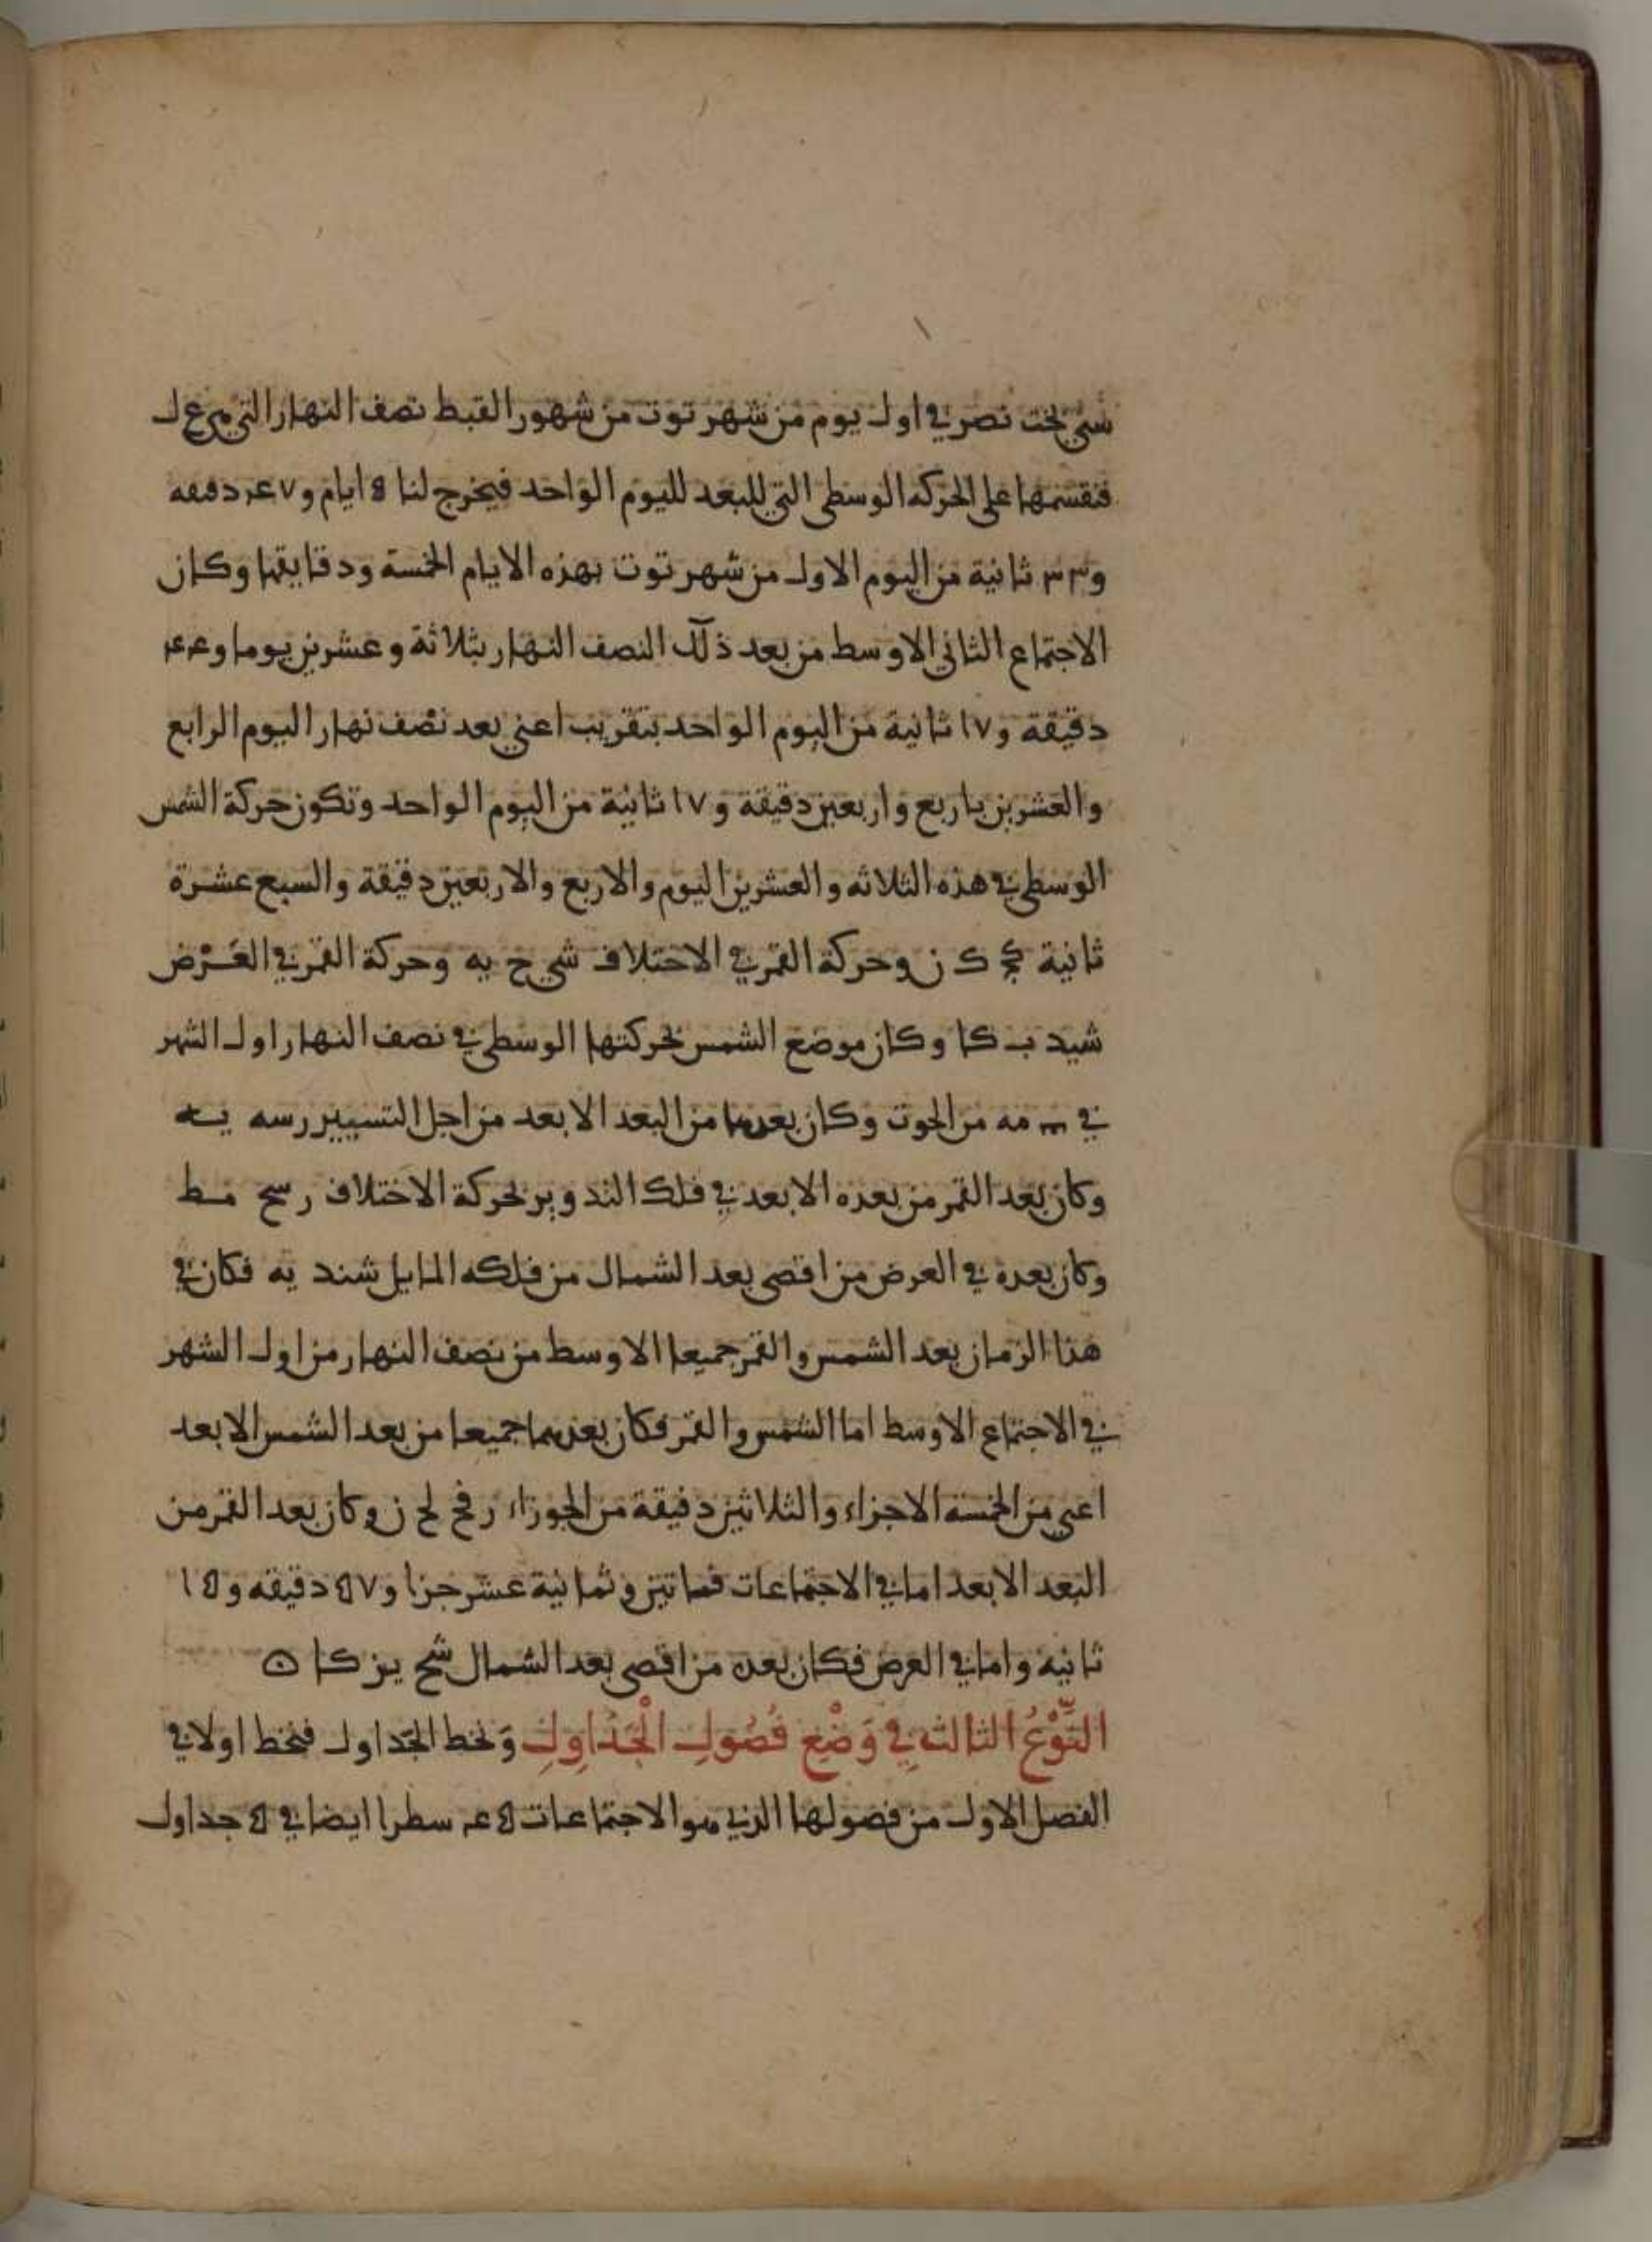 سني بخت نصر في اول يوم من شهر توت من شهور القبط نصف النهار التي هي ع ل
فنقسمها على الحركه الوسطى التي للبعد لليوم الواحد فيخرج لنا ٥ ايام و ٤٧ دقيقه
و ٣٣ ثانية من اليوم الاول من شهر توت بهذه الايام الخمسة ودقايقها وكان
الاجتماع الثاني الاوسط من بعد ذلك النصف النهار بثلاثة وعشرين يوما و ٤٤
دقيقة و ١٧ ثانية من اليوم الواحد بتقريب اعني بعد نصف نهار اليوم الرابع
والعشرين باربع واربعين دقيقة و ١٧ ثانية من اليوم الواحد وتكون حركة الشمس
الوسطى في هذه الثلاثه والعشرين اليوم والاربع والاربعين دقيقة والسبع عشرة
ثانية كج ك ز وحركة القمر في الاختلاف شي ح يه وحركة القمر في العَرْض
شيد ب كا وكان موضع الشمس بحركتها الوسطى في نصف النهار اول الشهر
في مه من الحوت وكان بعدها من البعد الابعد من اجل التسيير رسه يه
وكان بعد القمر من بعده الابعد في فلك التدوير لحركة الاختلاف رسح مط
وكان بعده في العرض من اقصى بعد الشمال من فلكه المايل شند يه فكان في
هذا الزمان بعد الشمس والقمر جميعا الاوسط من نصف النهار من اول الشهر
في الاجتماع الاوسط اما الشمس والقمر فكان بعدهما جميعا من بعد الشمس الابعد
اعني من الخمسة الاجزاء والثلاثين دقيقة من الجوزاء رفح لح ز وكان بعد القمر من
البعد الابعد اما في الاجتماعات فماتين وثمانية عشر جزا و ٥٧ دقيقه و ١٥
ثانيه واما في العرض فكان بعده من اقصى بعد الشمال شح يز كا ⊙
النَّوْعُ الثالث في وَضْعِ فُصُولِ الْجَدَاوِلِ وَنخط الجَداول فنخط اولا في
الفصل الاول من فصولها الذي هو الاجتماعات ٤٥ سطرا ايضا في ٥ جداول